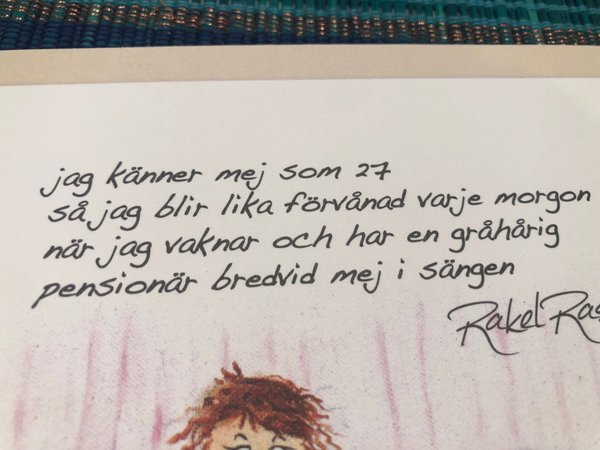 jag känner mej som 27
så jag blir lika förvånad varje morgon
när jag vaknar och har en gråhårig
pensionär bredvid mej i sängen
Rakel